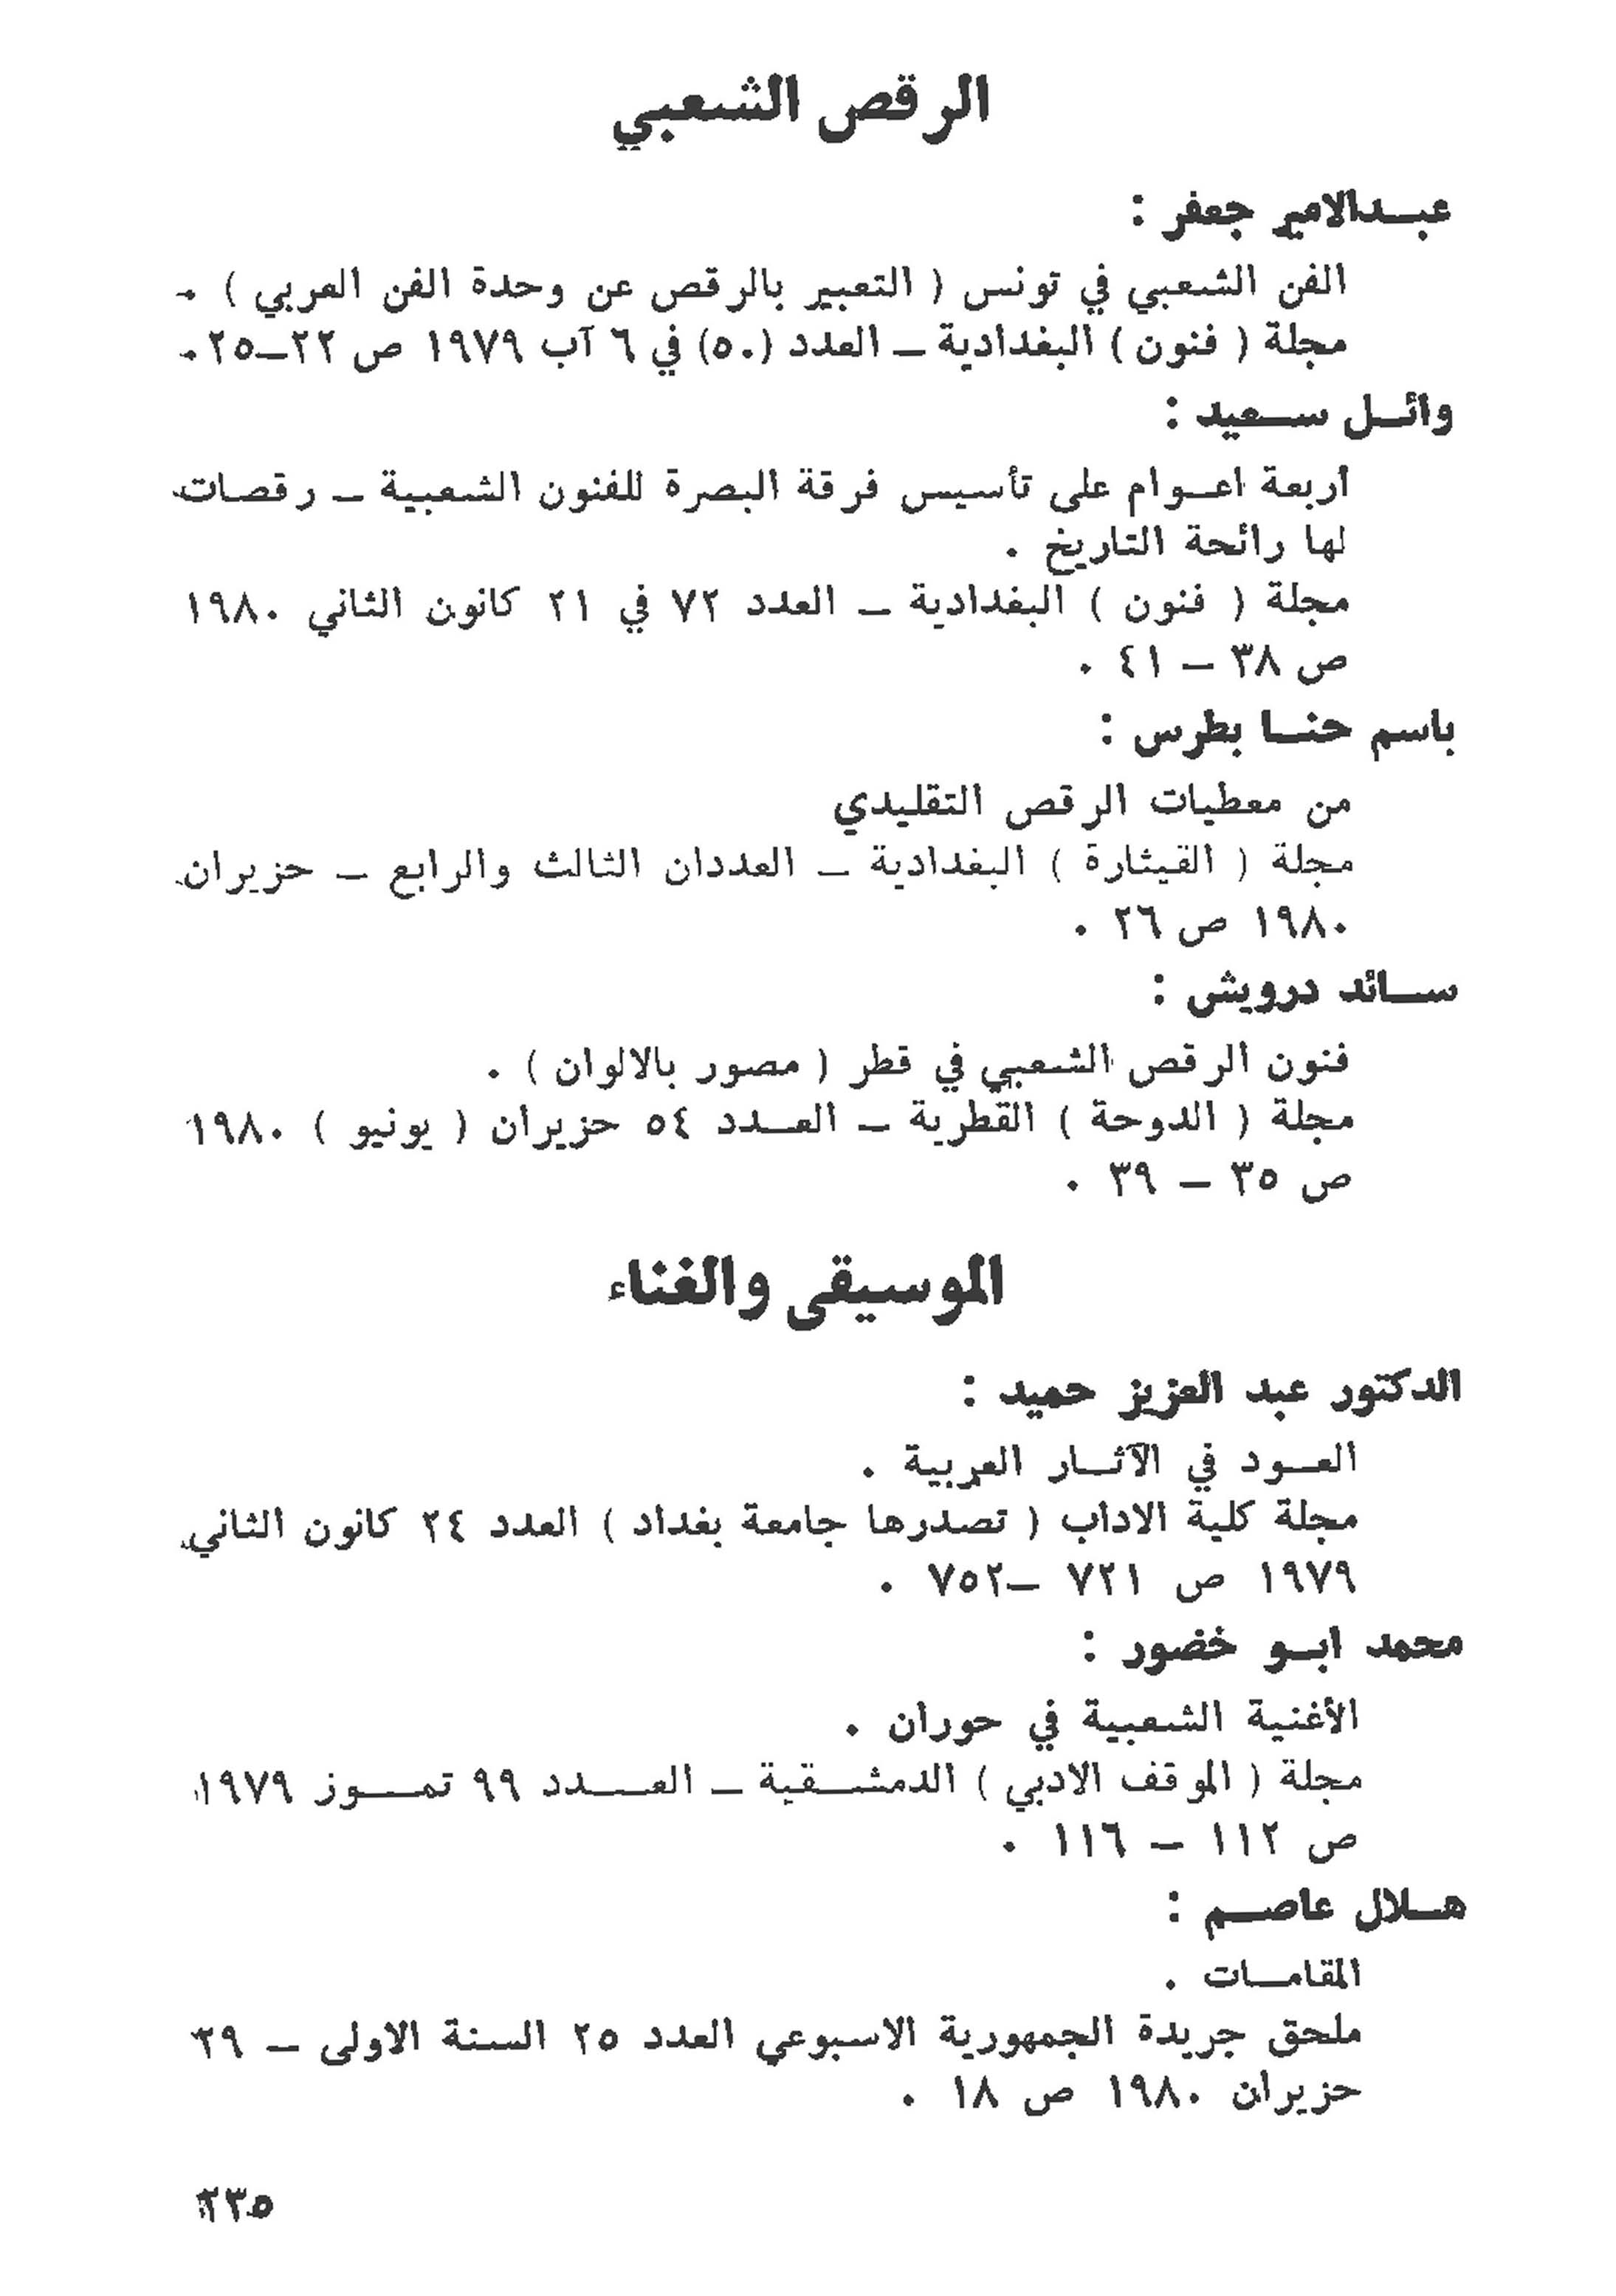 الرقص الشعبي
عبدالامير جعفر :
الفن الشعبي في تونس ( التعبير بالرقص عن وحدة الفن العربي ) .
مجلة ( فنون ) البغدادية – العدد (٥٠) في ٦ آب ١٩٧٩ ص ٢٢–٢٥ .
وائل سعيد :
أربعة اعوام على تأسيس فرقة البصرة للفنون الشعبية – رقصات
لها رائحة التاريخ .
مجلة ( فنون ) البغدادية – العدد ٧٢ في ٢١ كانون الثاني ١٩٨٠
ص ٣٨ – ٤١ .
باسم حنا بطرس :
من معطيات الرقص التقليدي
مجلة ( القيثارة ) البغدادية – العددان الثالث والرابع – حزيران
١٩٨٠ ص ٢٦ .
سائد درويش :
فنون الرقص الشعبي في قطر ( مصور بالالوان ) .
مجلة ( الدوحة ) القطرية – العدد ٥٤ حزيران ( يونيو ) ١٩٨٠
ص ٣٥ – ٣٩ .
الموسيقى والغناء
الدكتور عبد العزيز حميد :
العود في الآثار العربية .
مجلة كلية الاداب ( تصدرها جامعة بغداد ) العدد ٢٤ كانون الثاني
١٩٧٩ ص ٧٢١ –٧٥٢ .
محمد ابو خضور :
الأغنية الشعبية في حوران .
مجلة ( الموقف الادبي ) الدمشقية – العدد ٩٩ تموز ١٩٧٩
ص ١١٢ – ١١٦ .
هلال عاصم :
المقامات .
ملحق جريدة الجمهورية الاسبوعي العدد ٢٥ السنة الاولى – ٢٩
حزيران ١٩٨٠ ص ١٨ .
٢٣٥